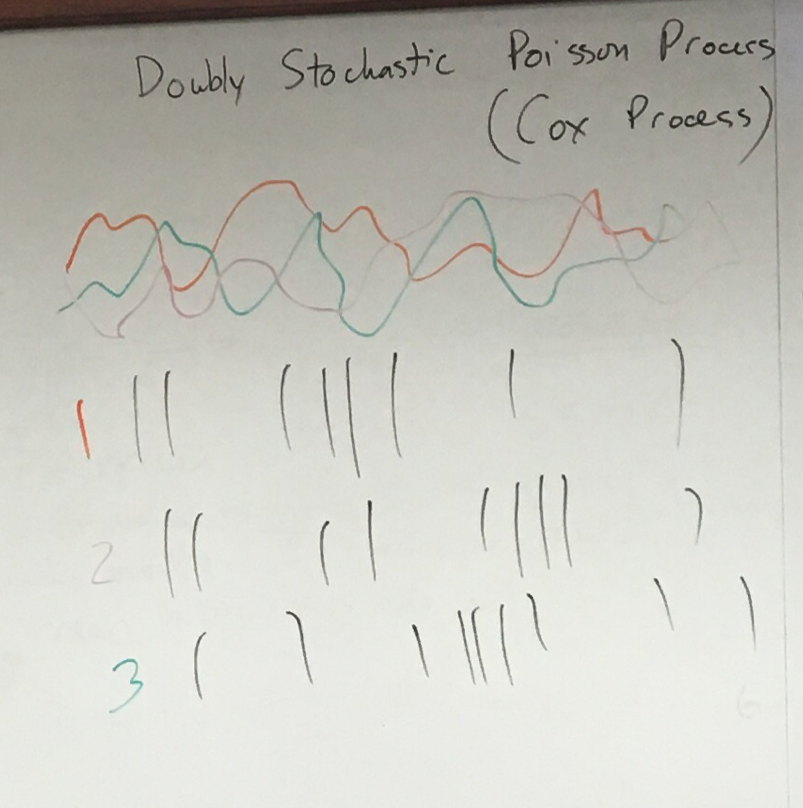 Doubly Stochastic Poisson Process
(Cox Process)
1
2
3